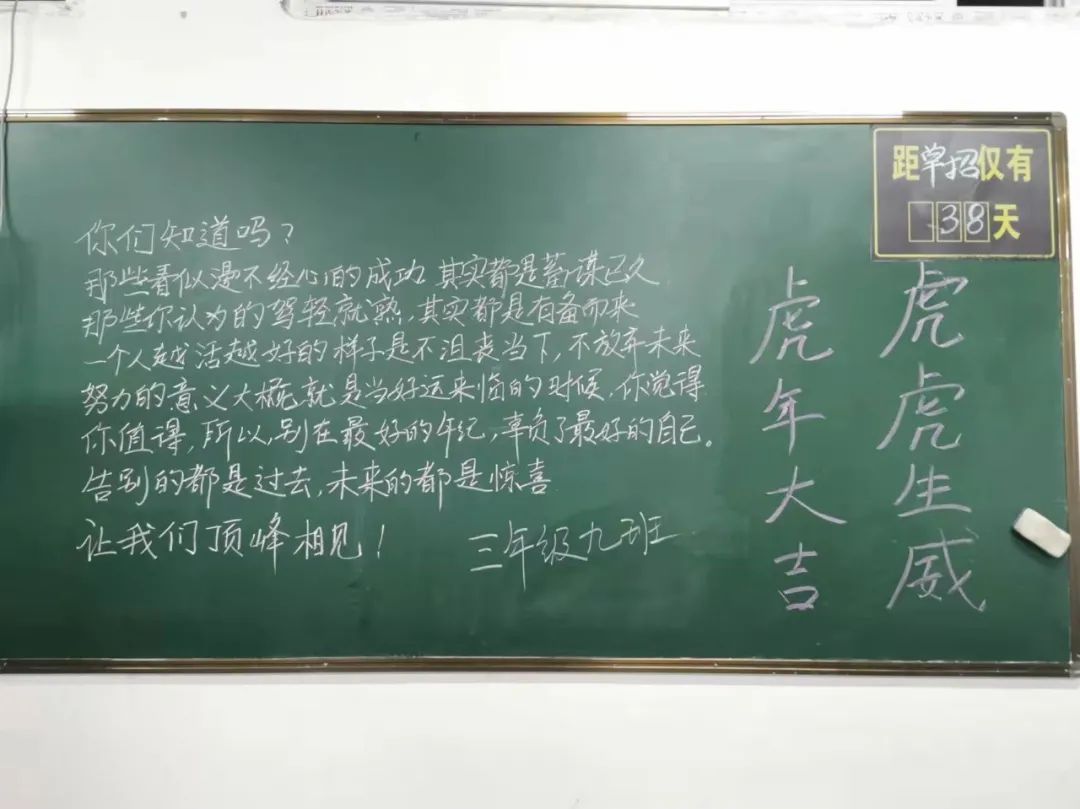 你们知道吗？
那些看似漫不经心的成功 其实都是蓄谋已久
那些你认为的驾轻就熟，其实都是有备而来
一个人越活越好的样子是不沮丧当下，不放弃未来
努力的意义大概就是当好运来临的时候，你觉得
你值得，所以，别在最好的年纪，辜负了最好的自己。
告别的都是过去，未来的都是惊喜
让我们顶峰相见！
三年级九班
距单招仅有
38天
虎虎生威
虎年大吉